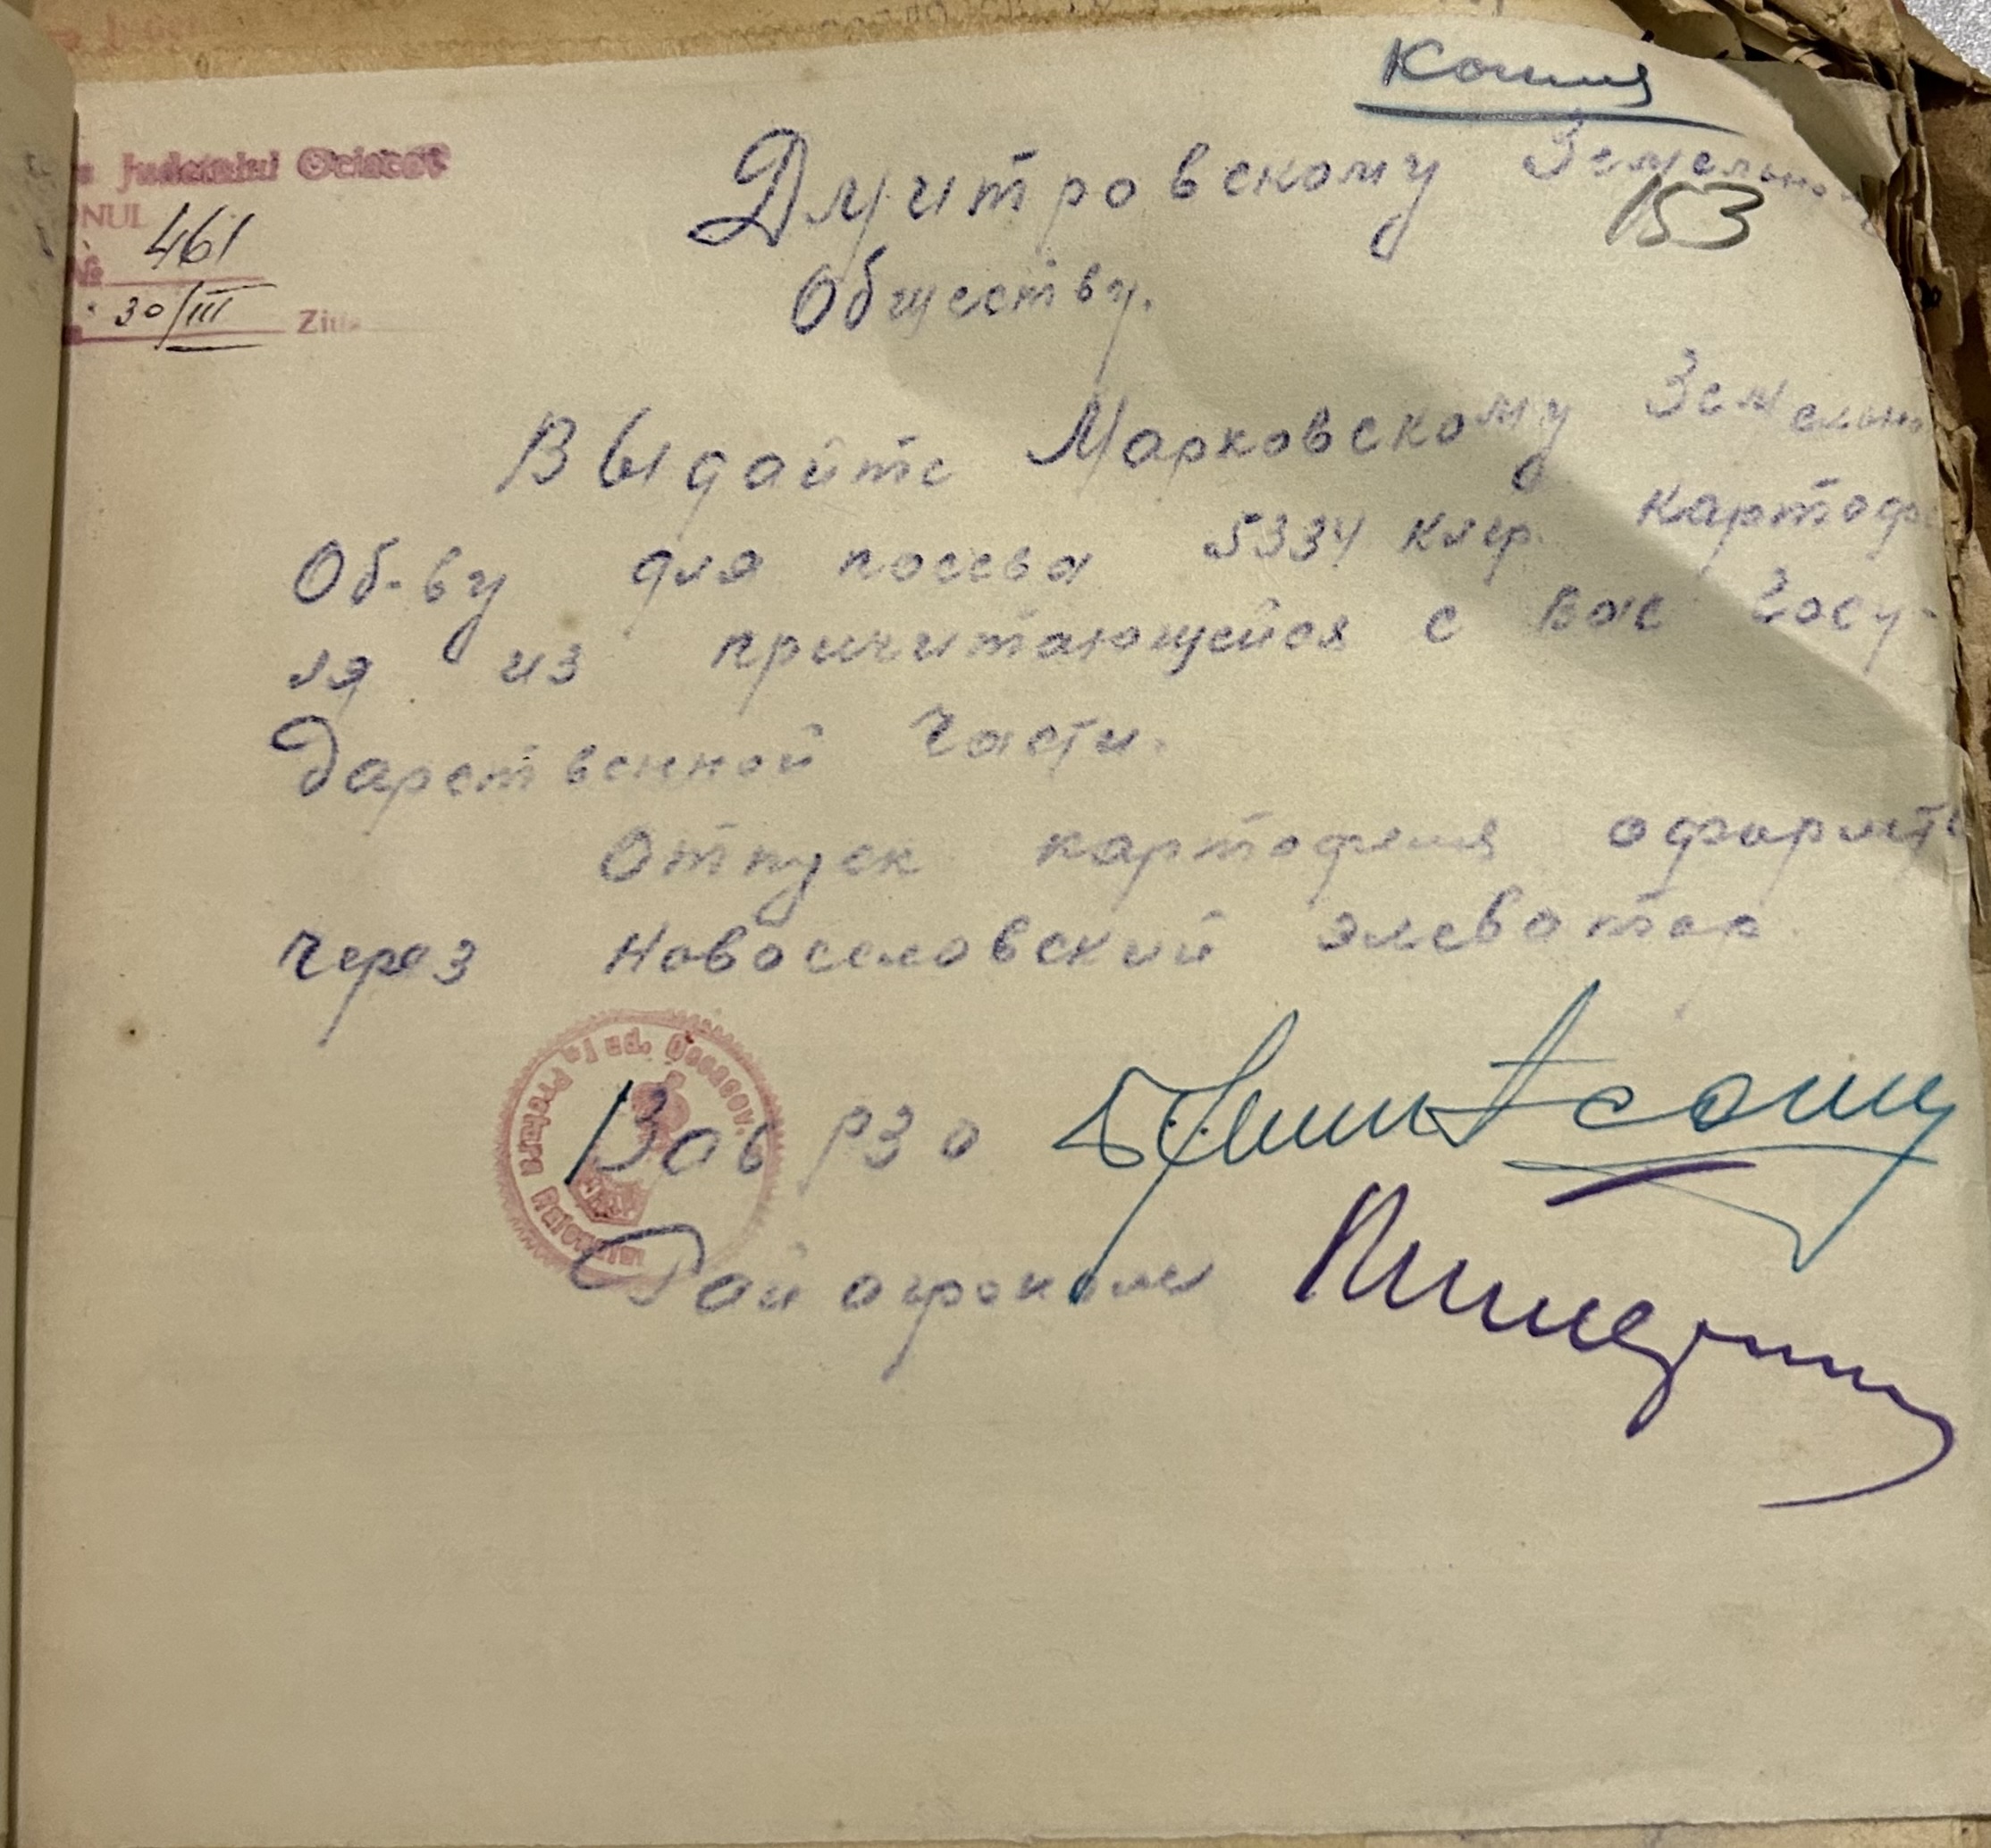 Копия
Judetului Ociacov
ONUL
№ 461
30/III Ziua
153
Дмитровскому Земельному
Обществу.
Выдайте Марковскому Земельно
Об-ву для посева 5334 клгр. картофе
ля из причитающейся с Вас Госу-
дарственной части.
Отпуск картофеля оформить
через Новоселовский элеватор.
Зав РЗО
Райагроном
Pretura Raionului Jud. Oceacov.